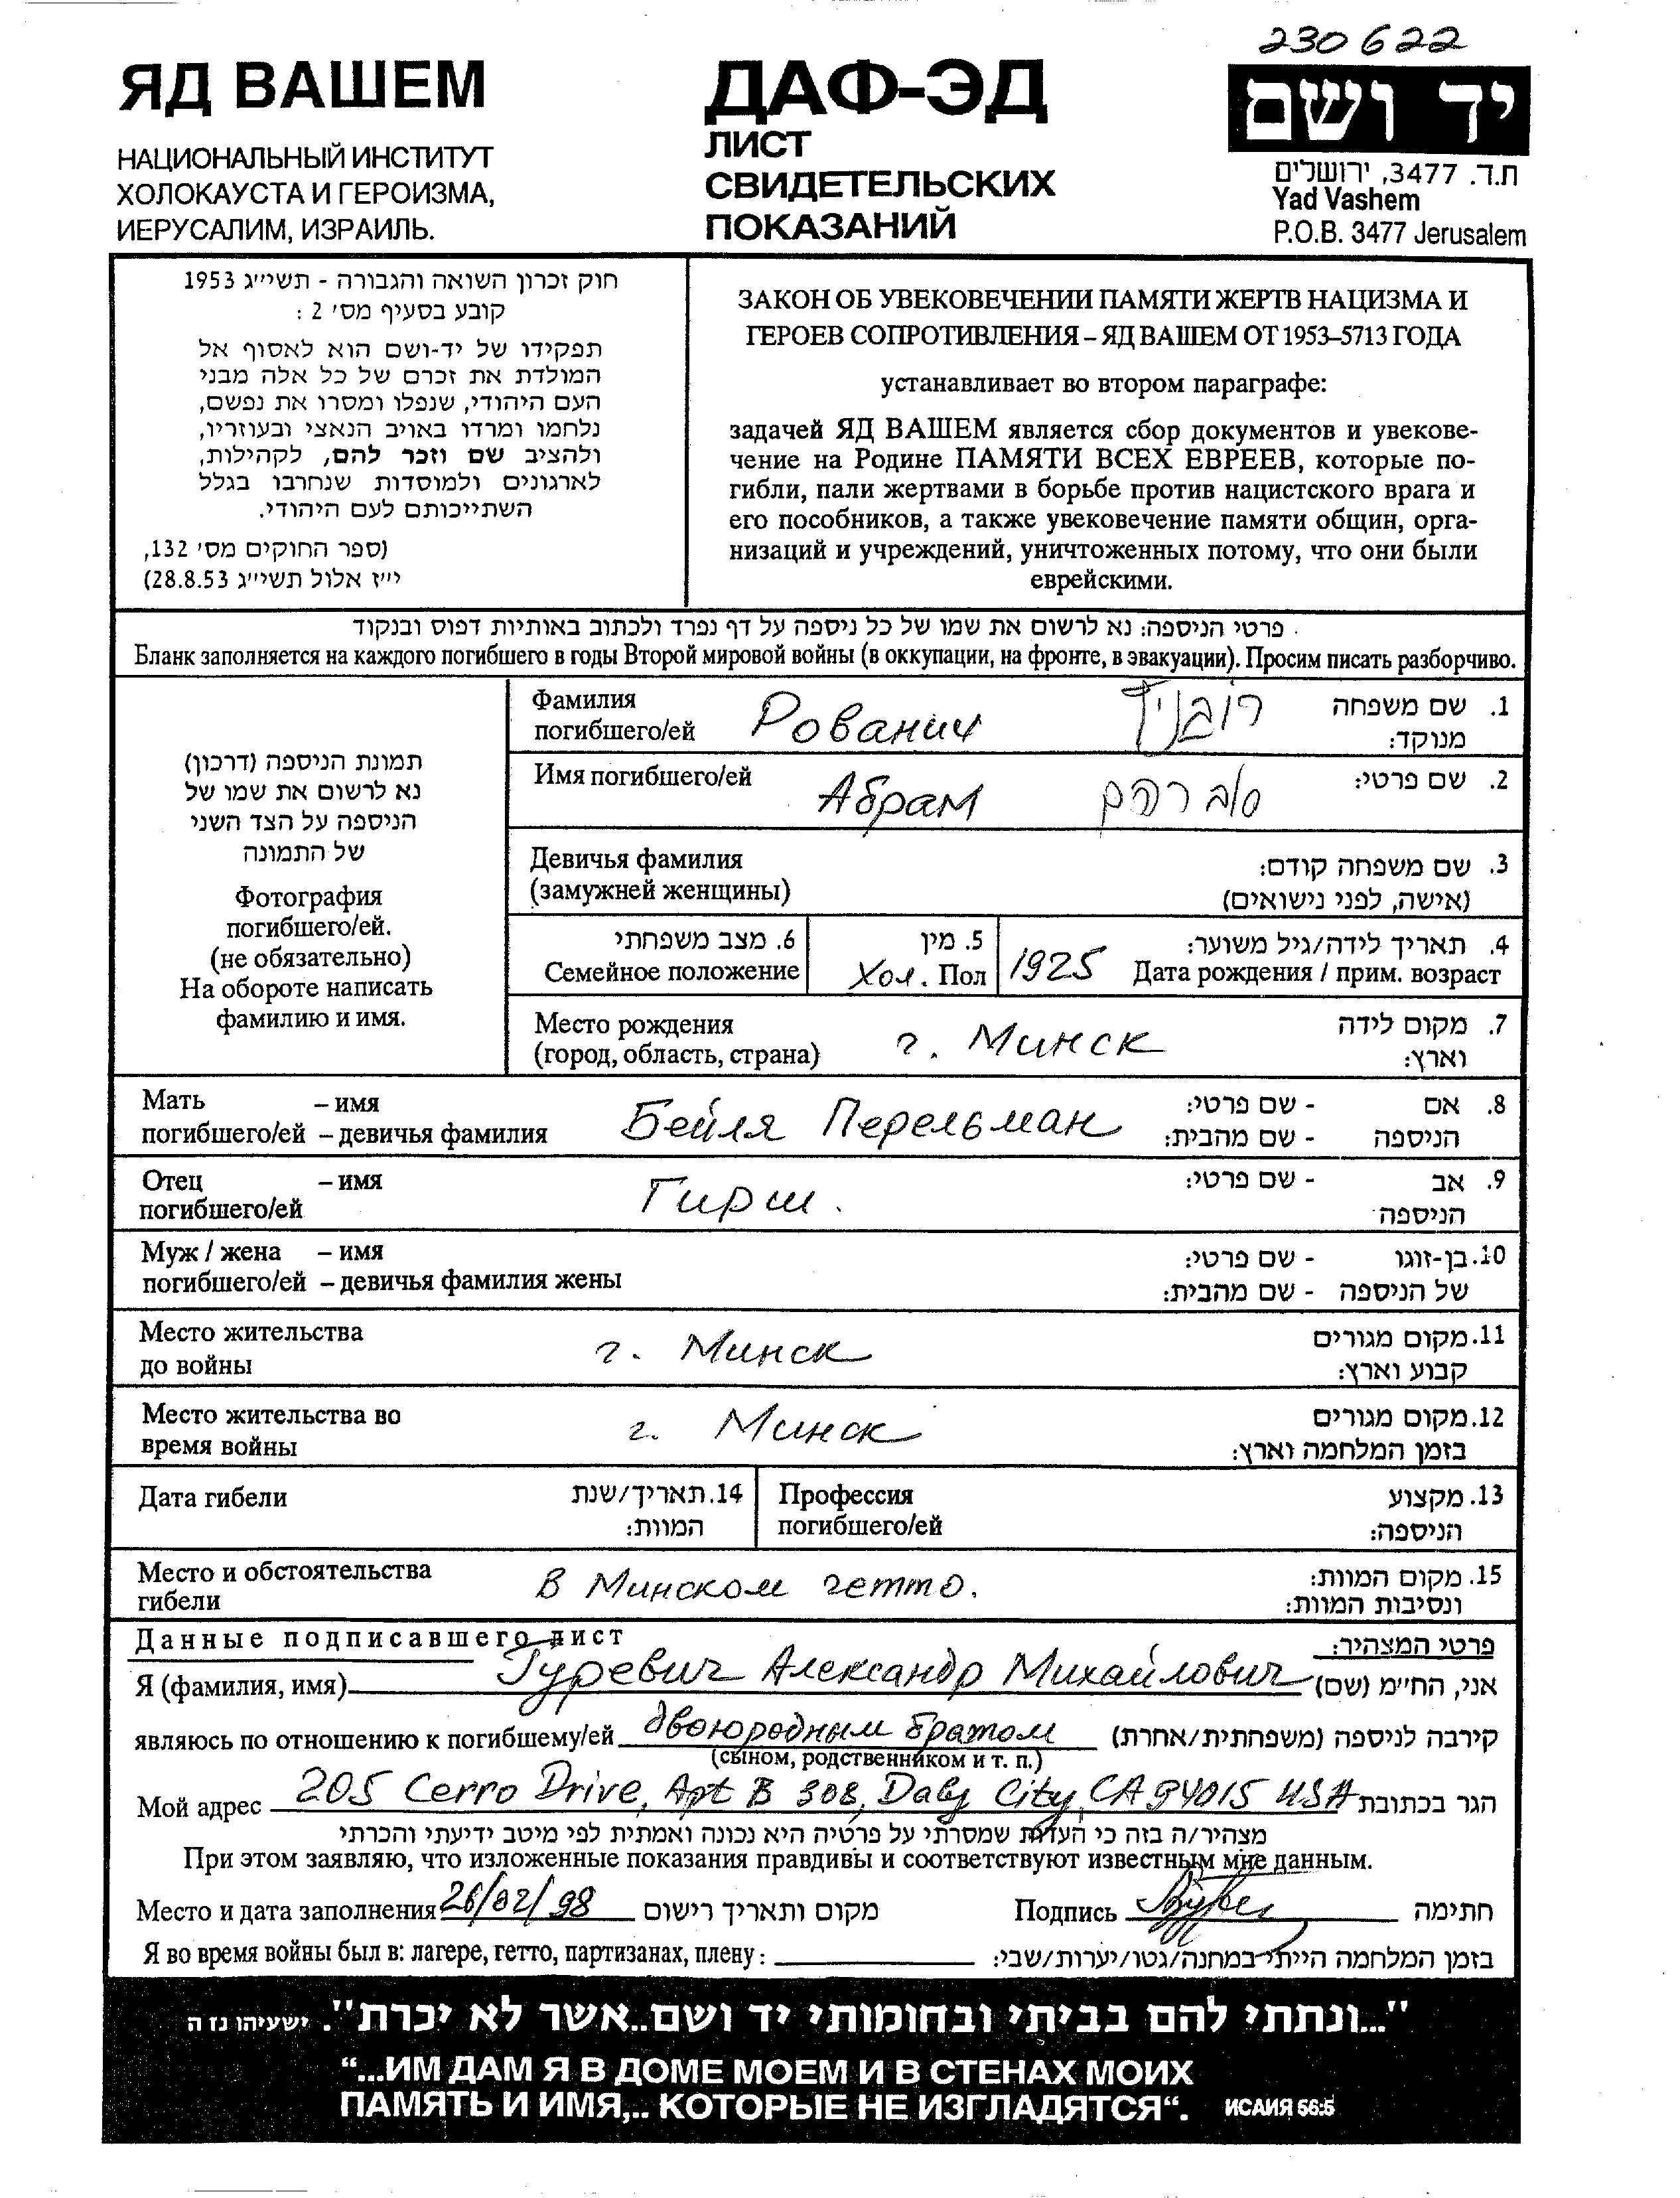 230622
ЯД ВАШЕМ
НАЦИОНАЛЬНЫЙ ИНСТИТУТ
ХОЛОКАУСТА И ГЕРОИЗМА,
ИЕРУСАЛИМ, ИЗРАИЛЬ.
ДАФ-ЭД
ЛИСТ
СВИДЕТЕЛЬСКИХ
ПОКАЗАНИЙ
יד ושם
ת.ד. 3477, ירושלים
Yad Vashem
P.O.B. 3477 Jerusalem
חוק זכרון השואה והגבורה - תשי״ג 1953
קובע בסעיף מס׳ 2 :
תפקידו של יד-ושם הוא לאסוף אל
המולדת את זכרם של כל אלה מבני
העם היהודי, שנפלו ומסרו את נפשם,
נלחמו ומרדו באויב הנאצי ובעוזריו,
ולהציב שם וזכר להם, לקהילות,
לארגונים ולמוסדות שנחרבו בגלל
השתייכותם לעם היהודי.
(ספר החוקים מס׳ 132,
י״ז אלול תשי״ג 28.8.53)
ЗАКОН ОБ УВЕКОВЕЧЕНИИ ПАМЯТИ ЖЕРТВ НАЦИЗМА И
ГЕРОЕВ СОПРОТИВЛЕНИЯ – ЯД ВАШЕМ ОТ 1953–5713 ГОДА
устанавливает во втором параграфе:
задачей ЯД ВАШЕМ является сбор документов и увекове-
чение на Родине ПАМЯТИ ВСЕХ ЕВРЕЕВ, которые по-
гибли, пали жертвами в борьбе против нацистского врага и
его пособников, а также увековечение памяти общин, орга-
низаций и учреждений, уничтоженных потому, что они были
еврейскими.
פרטי הניספה: נא לרשום את שמו של כל ניספה על דף נפרד ולכתוב באותיות דפוס ובנקוד
Бланк заполняется на каждого погибшего в годы Второй мировой войны (в оккупации, на фронте, в эвакуации). Просим писать разборчиво.
תמונת הניספה (דרכון)
נא לרשום את שמו של
הניספה על הצד השני
של התמונה
Фотография
погибшего/ей.
(не обязательно)
На обороте написать
фамилию и имя.
Фамилия
погибшего/ей Рованич רובניץ 1. שם משפחה
מנוקד:
Имя погибшего/ей Абрам אברהם 2. שם פרטי:
Девичья фамилия 3. שם משפחה קודם:
(замужней женщины) (אישה, לפני נישואים)
6. מצב משפחתי 5. מין 4. תאריך לידה/גיל משוער:
Семейное положение Хол. Пол 1925 Дата рождения / прим. возраст
Место рождения 7. מקום לידה
(город, область, страна) г. Минск וארץ:
Мать – имя 8. אם - שם פרטי:
погибшего/ей – девичья фамилия Бейля Перельман הניספה - שם מהבית:
Отец – имя Гирш. 9. אב - שם פרטי:
погибшего/ей הניספה
Муж / жена – имя 10. בן-זוגו - שם פרטי:
погибшего/ей – девичья фамилия жены של הניספה - שם מהבית:
Место жительства 11. מקום מגורים
до войны г. Минск קבוע וארץ:
Место жительства во 12. מקום מגורים
время войны г. Минск בזמן המלחמה וארץ:
Дата гибели 14. תאריך/שנת
המוות:
Профессия 13. מקצוע
погибшего/ей הניספה:
Место и обстоятельства 15. מקום המוות:
гибели В Минском гетто. ונסיבות המוות:
Данные подписавшего лист פרטי המצהיר:
Я (фамилия, имя) Гуревич Александр Михайлович אני, הח״מ (שם)
являюсь по отношению к погибшему/ей двоюродным братом קירבה לניספה (משפחתית/אחרת)
(сыном, родственником и т. п.)
Мой адрес 205 Cerro Drive, Apt B 308, Daly City, CA 94015 USA הגר בכתובת
מצהיר/ה בזה כי העדות שמסרתי על פרטיה היא נכונה ואמתית לפי מיטב ידיעתי והכרתי
При этом заявляю, что изложенные показания правдивы и соответствуют известным мне данным.
Место и дата заполнения 26/02/98 מקום ותאריך רישום Подпись חתימה
Я во время войны был в: лагере, гетто, партизанах, плену: בזמן המלחמה הייתי במחנה/גטו/יערות/שבי:
"...ונתתי להם בביתי ובחומותי יד ושם..אשר לא יכרת". ישעיהו נז ה
“...ИМ ДАМ Я В ДОМЕ МОЕМ И В СТЕНАХ МОИХ
ПАМЯТЬ И ИМЯ,.. КОТОРЫЕ НЕ ИЗГЛАДЯТСЯ“. ИСАИЯ 56:5